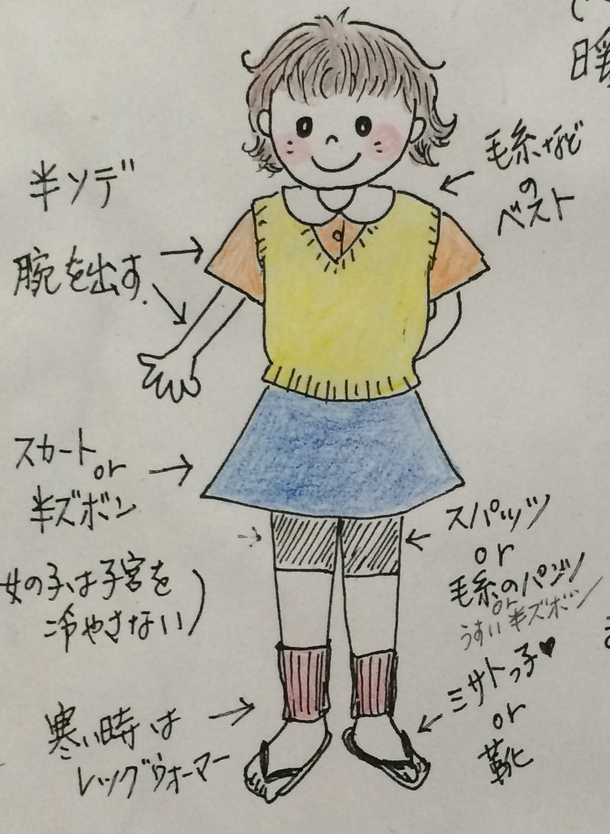 暖
毛糸など
の
ベスト
半ソデ
腕を出す
スカート
or
半ズボン
女の子は子宮を
冷やさない)
スパッツ
or
毛糸のパンツ
or
うすい半ズボン
ミサトっ子♥
or
靴
寒い時は
レッグウォーマー